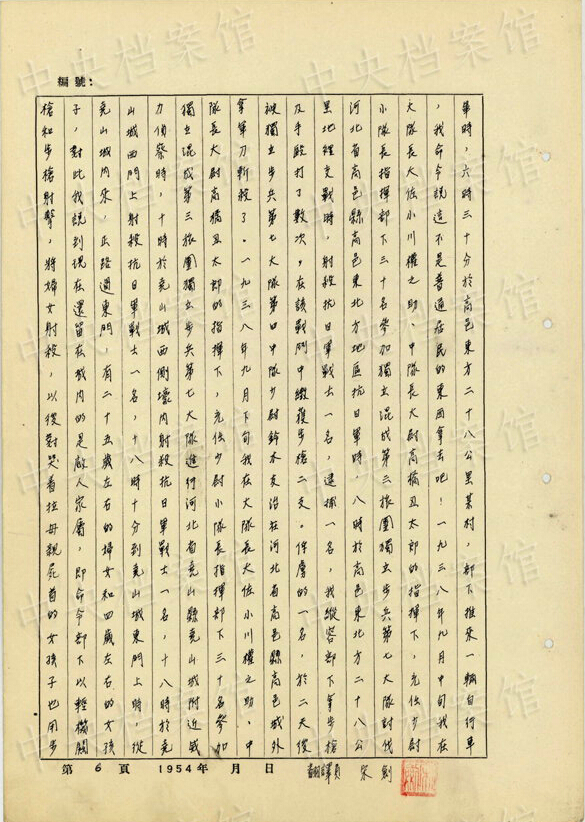 編號：
畢時，六時三十分於高邑東方二十八公里某村，部下推來一輛自行車
，我命令說這不是普通居民的東西拿去吧！一九三八年九月中旬我在
大隊長大佐小川權之助、中隊長大尉高橘丑太郎的指揮下，充任少尉
小隊長指揮部下三十名參加獨立混成第三旅團獨立步兵第七大隊討伐
河北省高邑縣高邑東北方地區抗日軍時，八時於高邑東北方二十八公
里地裡交戰時，射殺抗日軍戰士一名，逮捕一名，我縱容部下拿步槍
及手毆打了數次，在該戰鬥中繳獲步槍二支。俘虜的一名，於二天後
被獨立步兵第七大隊第四中隊少尉鈴木支沿在河北省高邑縣高邑城外
拿軍刀斬殺了。一九三八年九月下旬我在大隊長大佐小川權之助、中
隊長大尉高橘丑太郎的指揮下，充任少尉小隊長指揮部下三十名參加
獨立混成第三旅團獨立步兵第七大隊進行河北省堯山縣堯山城附近威
力偵察時，十時於堯山城西側壕內射殺抗日軍戰士一名，十八時於堯
山城西門上射殺抗日軍戰士一名，十八時十分到堯山城東門上時，從
堯山城內來，正路過東門，有二十五歲左右的婦女和四歲左右的女孩
子，對此我說到現在還留在城內的是敵人家屬，即命令部下以輕機關
槍和步槍射擊，將婦女射殺，以後對哭着拉母親屍首的女孩子也用步
第6頁 1954年 月 日 翻譯員 宋釗
中央档案馆